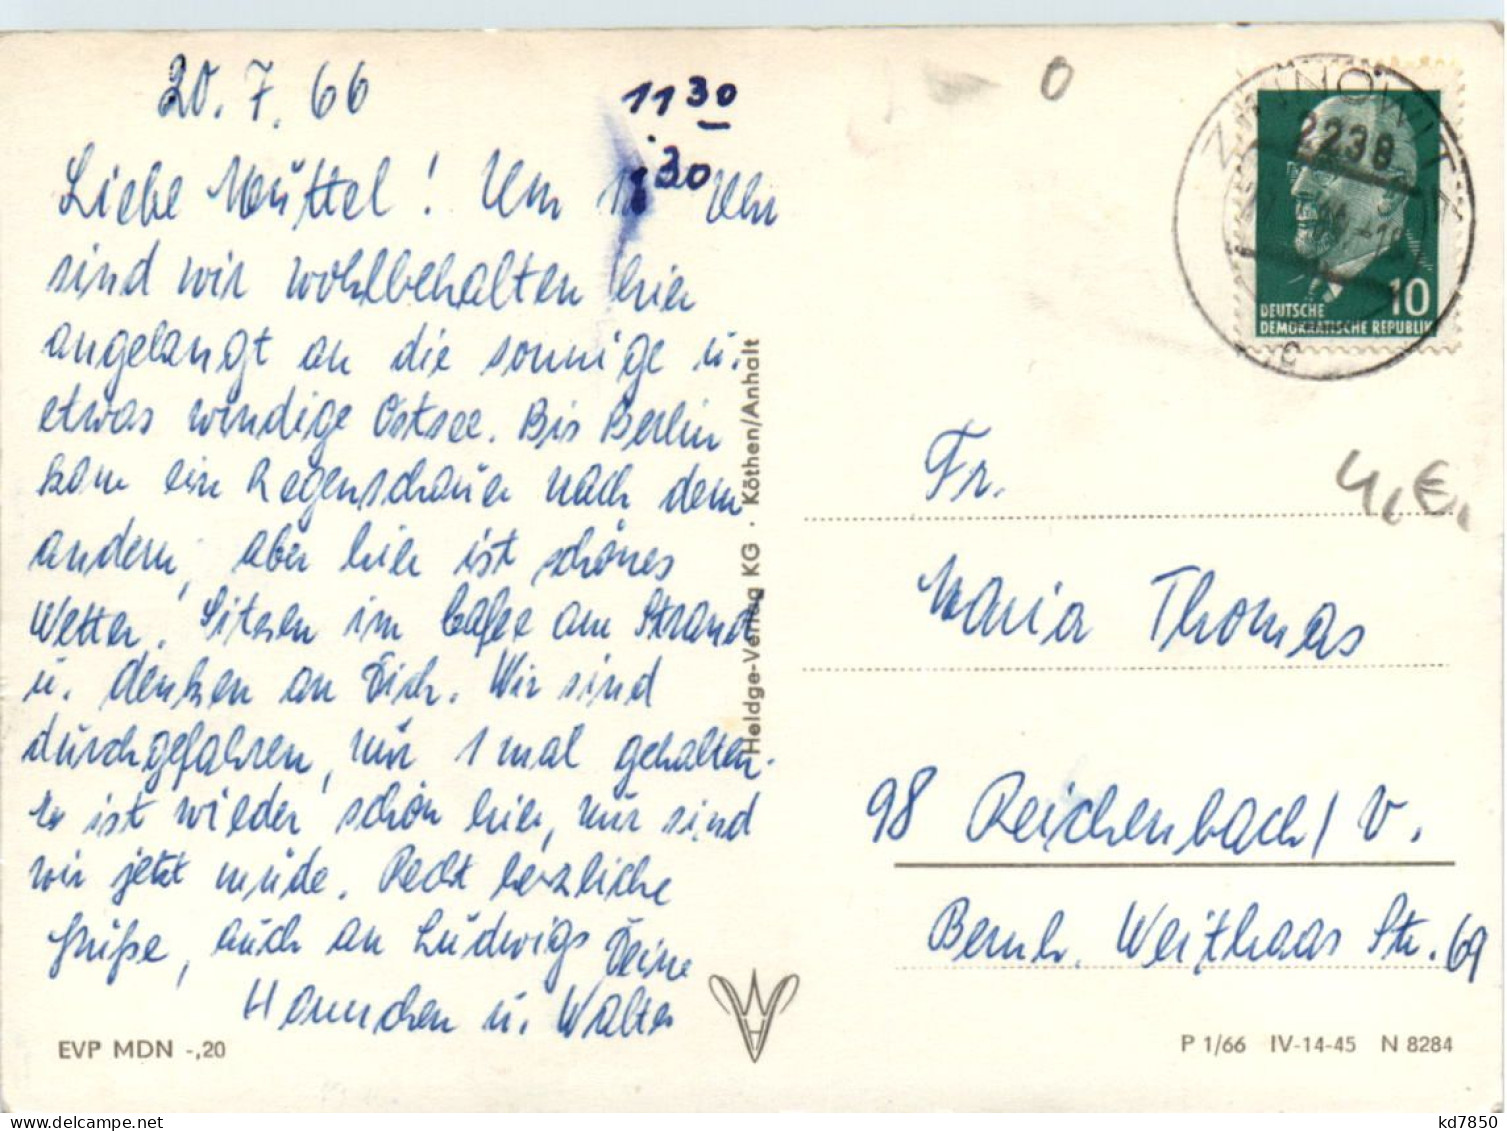 20. 7. 66
11 30
30
Liebe Muttel! Um 11 Uhr
sind wir wohlbehalten hier
angelangt an die sonnige u.
etwas windige Ostsee. Bis Berlin
kam ein Regenschauer nach dem
andern, aber hier ist schönes
Wetter. Sitzen im Cafee am Strand
u. denken an Dich. Wir sind
durchgefahren, nur 1 mal gehalten.
Es ist wieder schön hier, nur sind
wir jetzt müde. Recht herzliche
Grüße, auch an Ludwigs Deine
Hannchen u. Walter
EVP MDN -,20
Heldge-Verlag KG · Köthen/Anhalt
0
ZINNOWITZ
2238
c
10
DEUTSCHE
DEMOKRATISCHE REPUBLIK
4,€,
Fr.
Maria Thomas
98 Reichenbach/V.
Bernh. Weithaas Str. 69
P 1/66 IV-14-45 N 8284
kd7850